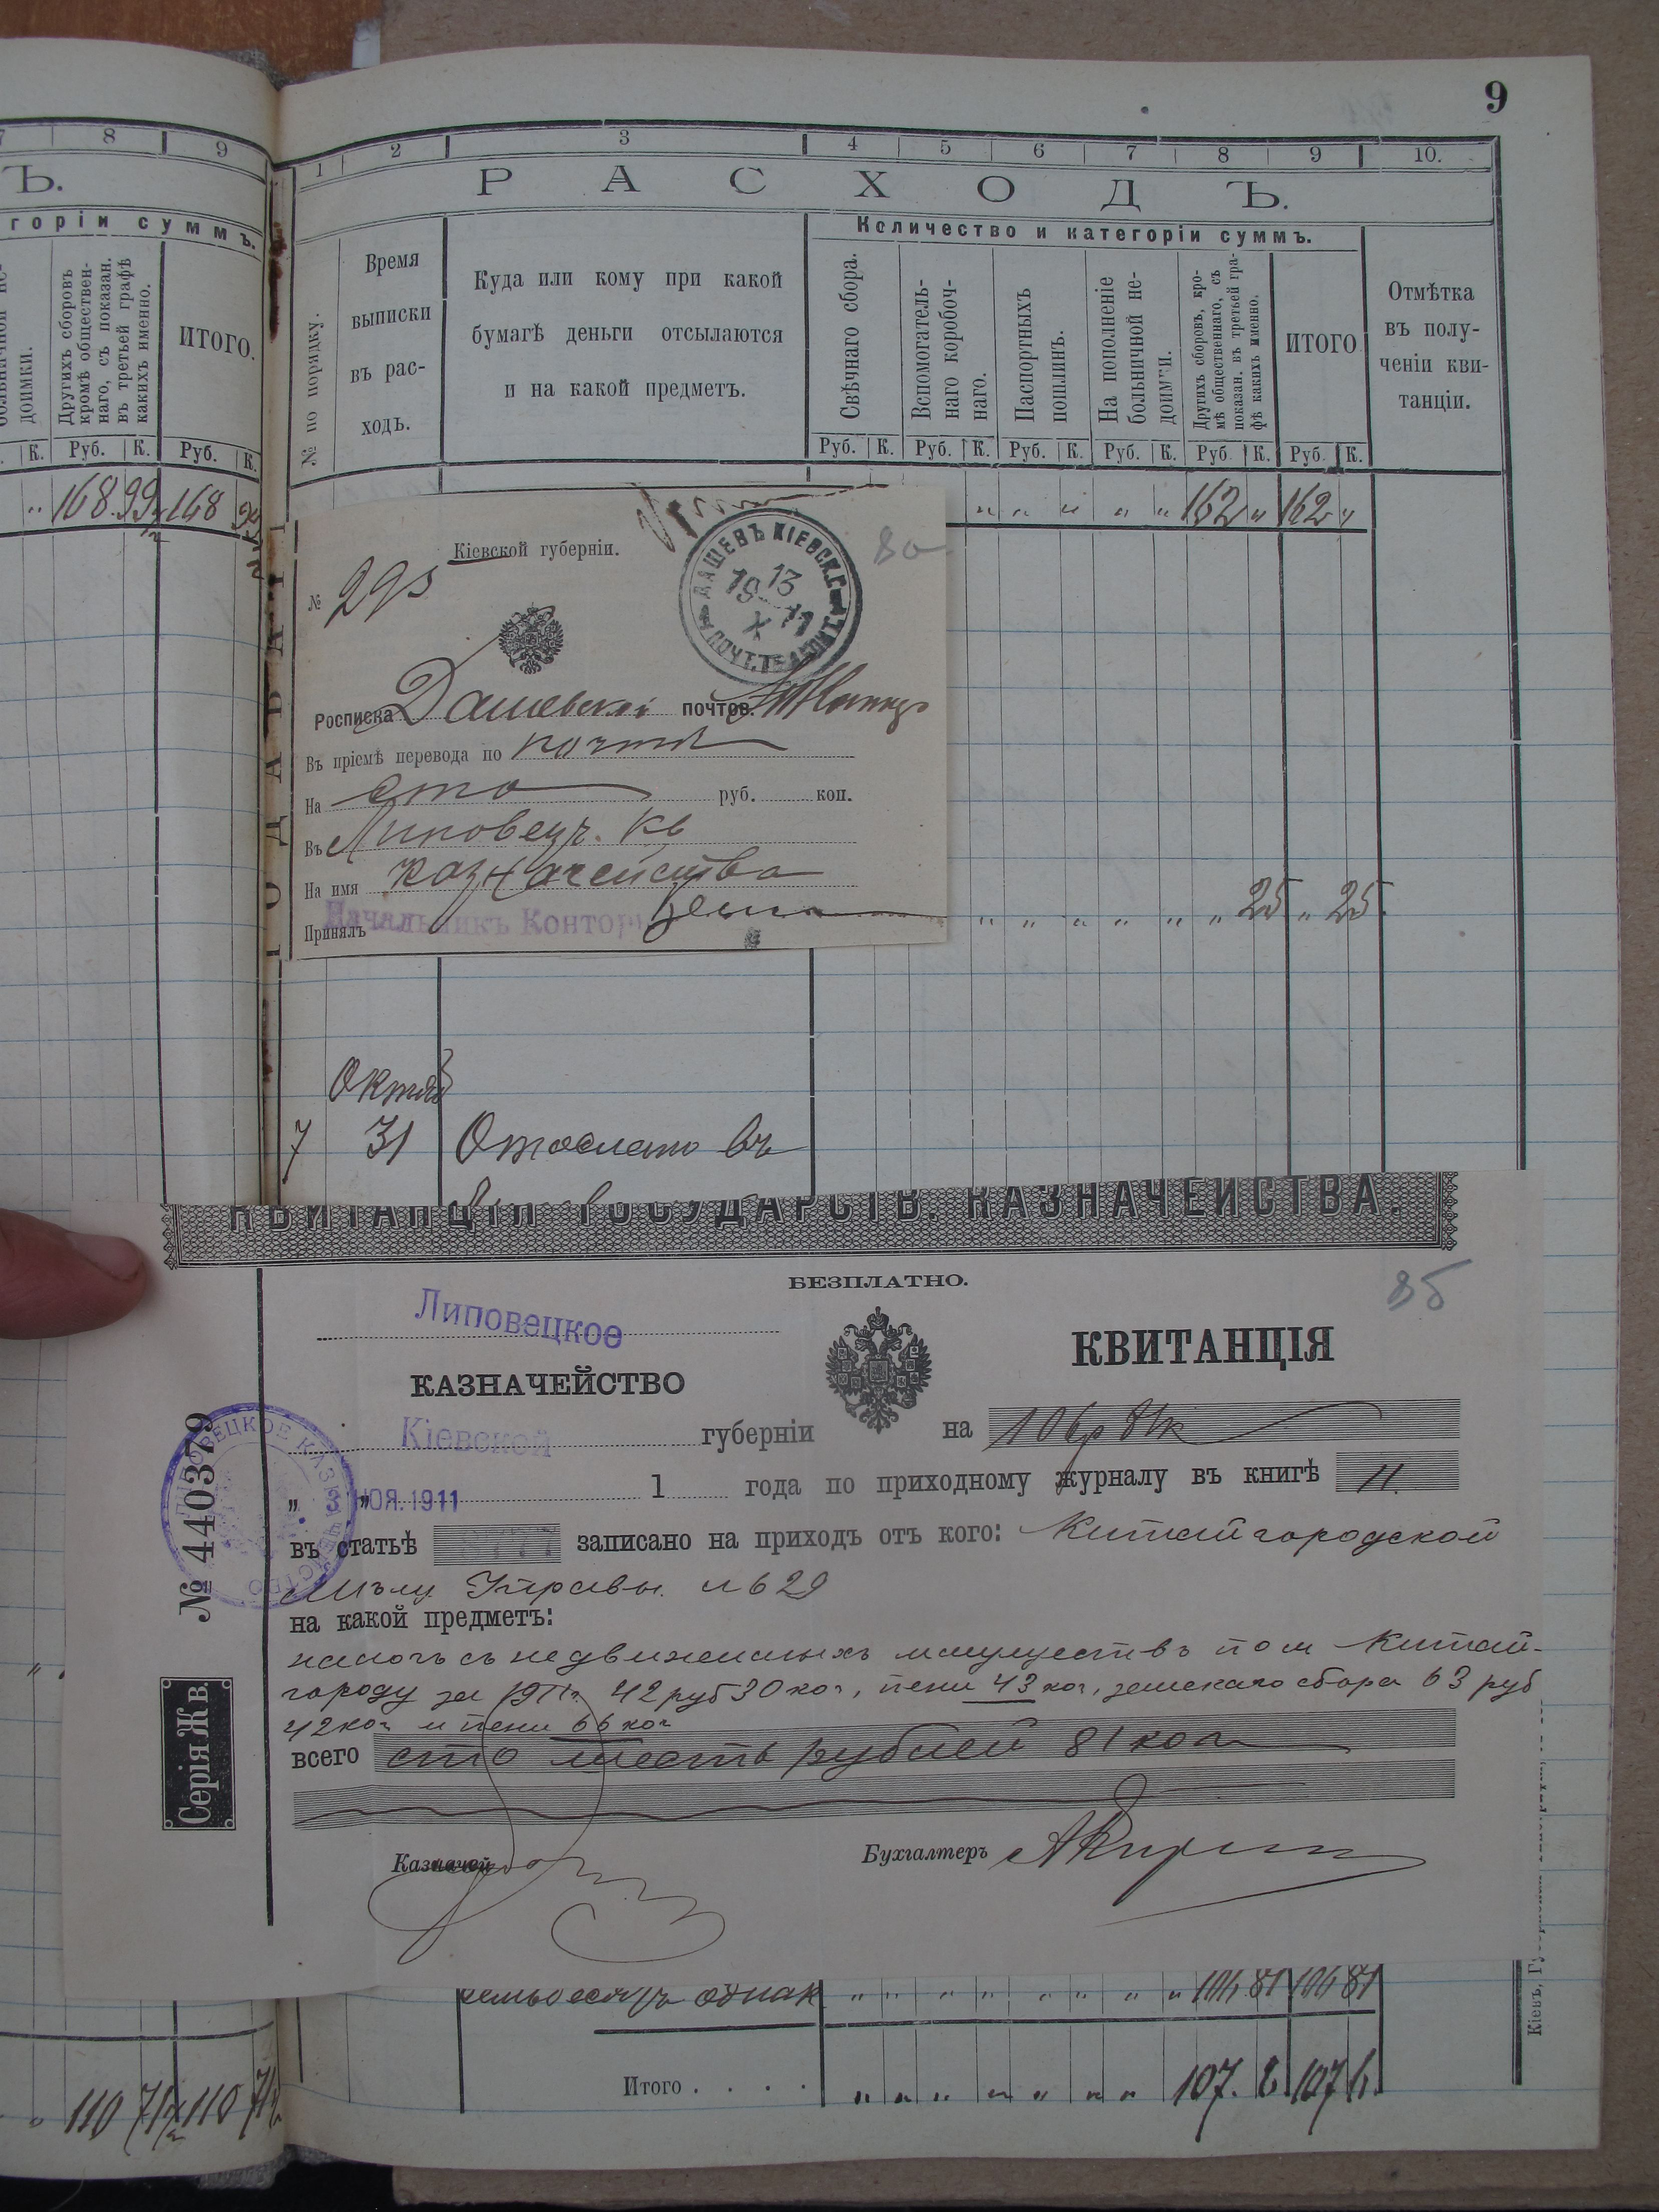 9
7 8 9
Ъ.
горіи суммъ.
доимки.
Другихъ сборовъ
кромѣ обществен-
наго, съ показан.
въ третьей графѣ
какихъ именно.
ИТОГО.
К. Руб. К. Руб. К.
„ 168 99 168
1 2 3 4 5 6 7 8 9 10.
РАСХОДЪ.
Количество и категоріи суммъ.
№ по порядку.
Время
выписки
въ рас-
ходъ.
Куда или кому при какой
бумагѣ деньги отсылаются
и на какой предметъ.
Свѣчнаго сбора.
Вспомогатель-
наго коробоч-
наго.
Паспортныхъ
пошлинъ.
На пополненіе
больничной не-
доимки.
Другихъ сборовъ, кро-
мѣ общественнаго, съ
показан. въ третьей гра-
фѣ какихъ именно.
ИТОГО
Отмѣтка
въ полу-
ченіи кви-
танціи.
Руб. К. Руб. К. Руб. К. Руб. К. Руб. К. Руб. К.
„ „ „ „ „ 162 „ 162 „
Кіевской губерніи.
№ 293
ДАШЕВЪ КІЕВСК.Г.
13 X 1911
ПОЧТ.ТЕЛ.
Росписка Дашевской почтов.
Въ пріемѣ перевода по почтѣ
На сто руб. коп.
Въ Липовец.
На имя казначейства
Принялъ Начальникъ Конторы
„ „ „ „ „ „ 25 „ 25.
Октяб
7 31 Отослано въ
КВИТАНЦІЯ ГОСУДАРСТВ. КАЗНАЧЕЙСТВА.
БЕЗПЛАТНО.
85
Липовецкое
КАЗНАЧЕЙСТВО
КВИТАНЦІЯ
Кіевской губерніи
на 106р 81к
„ 3 НОЯ. 1911 1 года по приходному журналу въ книгѣ 11.
въ статьѣ записано на приходъ отъ кого: Китайгородской
Мѣщ. Управы. № 629
на какой предметъ:
налогъ съ недвижимыхъ имуществъ по м Китай-
городу за 1911г. 42 руб 30 коп, пени 43 коп, земскаго сбора 63 руб
42 коп и пени 66 коп
всего сто шесть рублей 81 коп
Казначей
Бухгалтеръ
№ 440379
Серія Ж в.
ЛИПОВЕЦКОЕ КАЗНАЧЕЙСТВО
„ „ „ „ „ „ „ 106 81 106 81
Итого . . . .
„ „ „ „ „ „ „ 107. 107
110 71 110 71